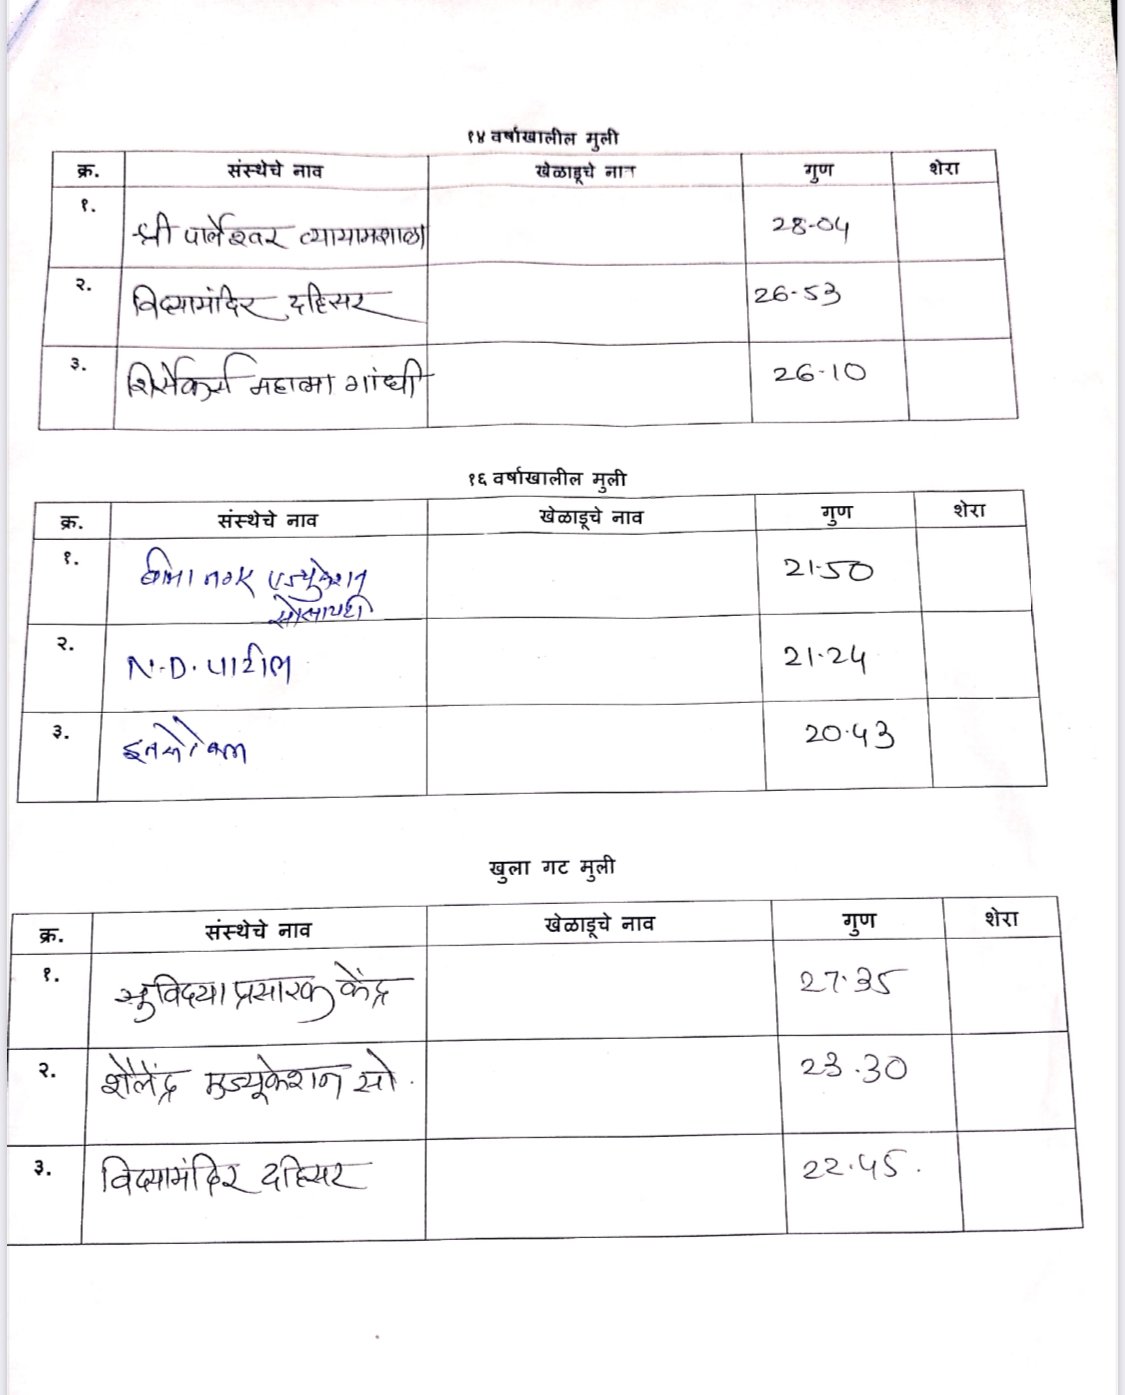 १४ वर्षाखालील मुली
क्र. संस्थेचे नाव खेळाडूचे नाव गुण शेरा
१. श्री पार्लेश्वर व्यायामशाळा 28.04
२. विद्यामंदिर दहिसर 26.53
३. शिर्सेकर्स महात्मा गांधी 26.10
१६ वर्षाखालील मुली
क्र. संस्थेचे नाव खेळाडूचे नाव गुण शेरा
१. नगर एज्युकेशन 21.50
सोसायटी
२. N.D. पाटील 21.24
३. 20.43
खुला गट मुली
क्र. संस्थेचे नाव खेळाडूचे नाव गुण शेरा
१. सुविद्या प्रसारक केंद्र 27.35
२. शैलेंद्र एज्युकेशन सो. 23.30
३. विद्यामंदिर दहिसर 22.45.